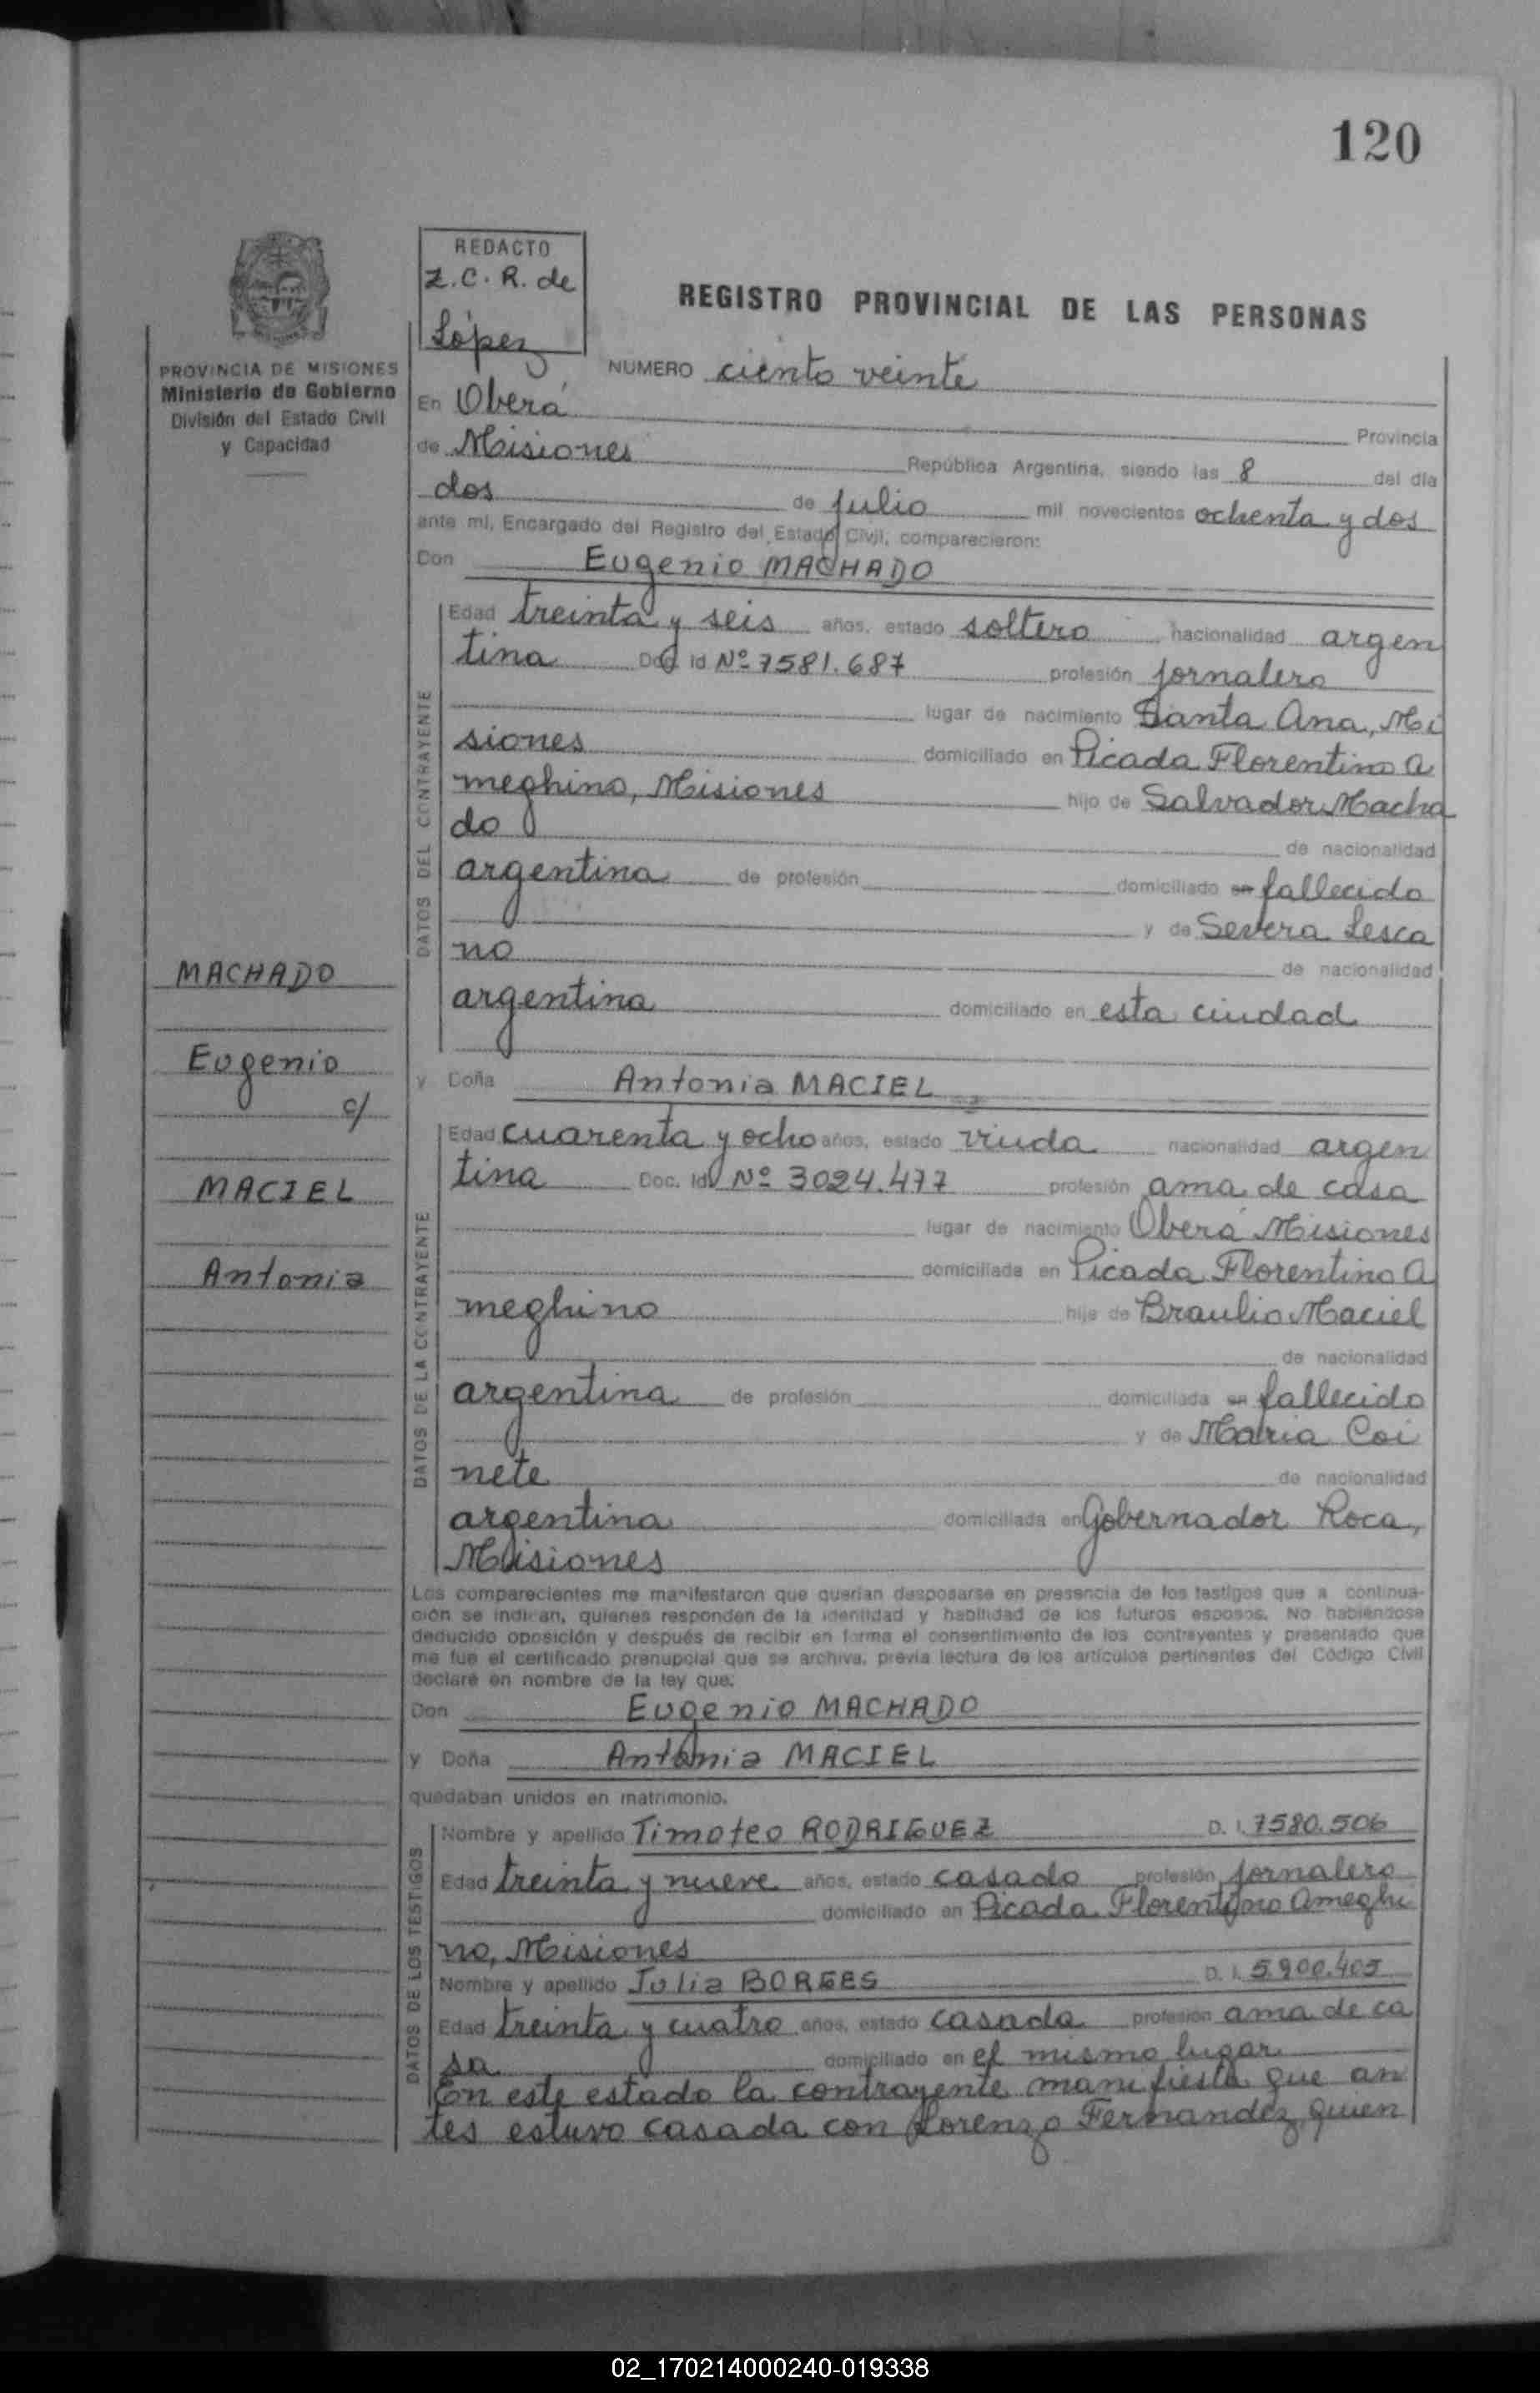 120
REDACTO
Z.C.R. de
López
REGISTRO PROVINCIAL DE LAS PERSONAS
PROVINCIA DE MISIONES
Ministerio de Gobierno
División del Estado Civil
y Capacidad
NUMERO ciento veinte
En Oberá Provincia
de Misiones República Argentina, siendo las 8 del día
dos de julio mil novecientos ochenta y dos
ante mí, Encargado del Registro del Estado Civil, comparecieron:
Don Eugenio MACHADO
DATOS DEL CONTRAYENTE
Edad treinta y seis años, estado soltero nacionalidad argen
tina Doc. Id. Nº 7581.687 profesión jornalero
lugar de nacimiento Santa Ana, Mi
siones domiciliado en Picada Florentino A
meghino, Misiones hijo de Salvador Macha
do de nacionalidad
argentina de profesión domiciliado en fallecido
y de Severa Lesca
no de nacionalidad
argentina domiciliado en esta ciudad
MACHADO
Eugenio
c/
MACIEL
Antonia
y Doña Antonia MACIEL
DATOS DE LA CONTRAYENTE
Edad cuarenta y ocho años, estado viuda nacionalidad argen
tina Doc. Id. Nº 3024.477 profesión ama de casa
lugar de nacimiento Oberá Misiones
domiciliada en Picada Florentino A
meghino hija de Braulio Maciel
de nacionalidad
argentina de profesión domiciliada en fallecido
y de María Coi
nete de nacionalidad
argentina domiciliada en Gobernador Roca,
Misiones
Los comparecientes me manifestaron que querían desposarse en presencia de los testigos que a continua-
ción se indican, quienes responden de la identidad y habilidad de los futuros esposos. No habiéndose
deducido oposición y después de recibir en forma el consentimiento de los contrayentes y presentado que
me fue el certificado prenupcial que se archiva, previa lectura de los artículos pertinentes del Código Civil
declaré en nombre de la ley que.
Don Eugenio MACHADO
y Doña Antonia MACIEL
quedaban unidos en matrimonio.
DATOS DE LOS TESTIGOS
Nombre y apellido Timoteo RODRIGUEZ D. I. 7580.506
Edad treinta y nueve años, estado casado profesión jornalero
domiciliado en Picada Florentino Ameghi
no, Misiones
Nombre y apellido Julia BORGES D. I. 5.900.405
Edad treinta y cuatro años, estado casada profesión ama de ca
sa domiciliado en el mismo lugar
En este estado la contrayente manifiesta que an
tes estuvo casada con Lorenzo Fernandez quien
02_170214000240-019338